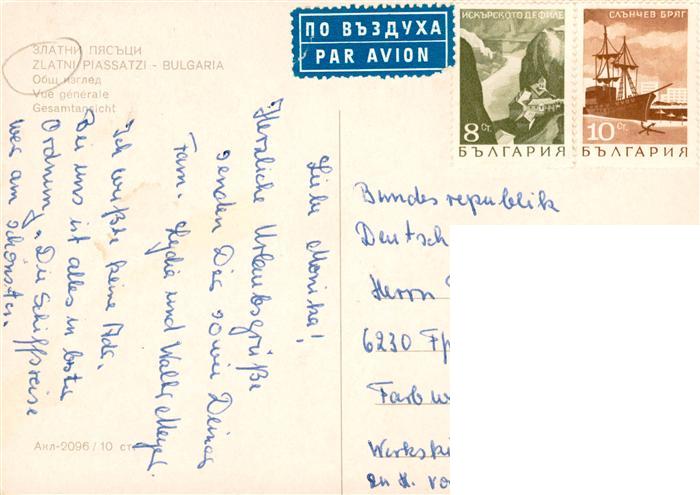 ЗЛАТНИ ПЯСЪЦИ
ZLATNI PIASSATZI - BULGARIA
Общ изглед
Vue générale
Gesamtansicht
ПО ВЪЗДУХА
PAR AVION
ИСКЪРСКОТО ДЕФИЛЕ
8 СТ.
БЪЛГАРИЯ
СЛЪНЧЕВ БРЯГ
10 СТ.
БЪЛГАРИЯ
Liebe Monika!
Herzliche Urlaubsgrüße
senden Dir sowie Deiner
Fam. Lydia und Walter Meyer.
Ich wußte keine Adr.
Bei uns ist alles in bester
Ordnung. Die Schiffsreise
war am schönsten.
Bundesrepublik
Deutsch
Herrn
6230 
Farbw
Werkski
zu H. vo
Акл-2096 / 10 ст